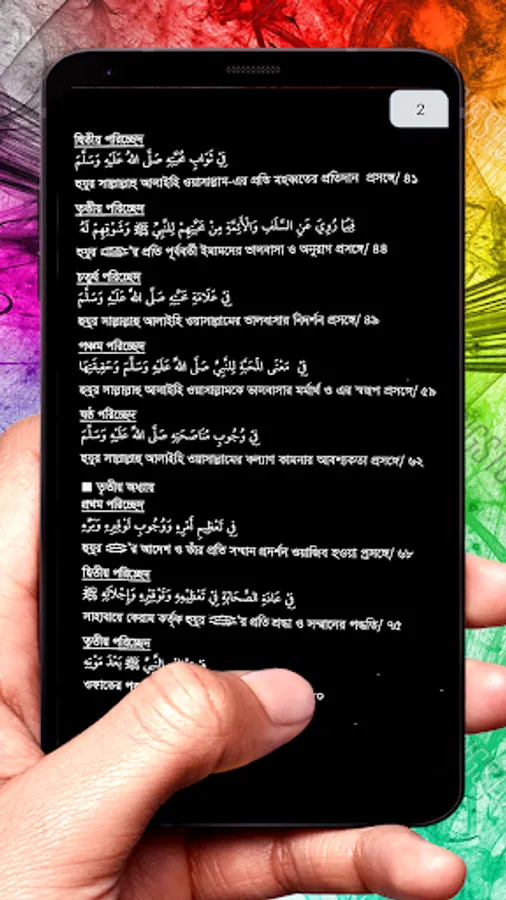 2
দ্বিতীয় পরিচ্ছেদ
فِي ثَوَابِ مَحَبَّتِهِ صَلَّى اللهُ عَلَيْهِ وَسَلَّمَ
হুযুর সাল্লাল্লাহু আলাইহি ওয়াসাল্লাম-এর প্রতি মহব্বতের প্রতিদান প্রসঙ্গে/ ৪১
তৃতীয় পরিচ্ছেদ
فِيمَا رُوِيَ عَنِ السَّلَفِ وَالْأَئِمَّةِ مِنْ مَحَبَّتِهِمْ لِلنَّبِيِّ ﷺ وَشَوْقِهِمْ لَهُ
হুযুর ﷺ'র প্রতি পূর্ববর্তী ইমামদের ভালবাসা ও অনুরাগ প্রসঙ্গে/ ৪৪
চতুর্থ পরিচ্ছেদ
فِي عَلَامَةِ مَحَبَّتِهِ صَلَّى اللهُ عَلَيْهِ وَسَلَّمَ
হুযুর সাল্লাল্লাহু আলাইহি ওয়াসাল্লামের ভালবাসার নিদর্শন প্রসঙ্গে/ ৪৯
পঞ্চম পরিচ্ছেদ
فِي مَعْنَى الْمَحَبَّةِ لِلنَّبِيِّ صَلَّى اللهُ عَلَيْهِ وَسَلَّمَ وَحَقِيقَتِهَا
হুযুর সাল্লাল্লাহু আলাইহি ওয়াসাল্লামকে ভালবাসার মর্মার্থ ও এর স্বরূপ প্রসঙ্গে/ ৫৯
ষষ্ঠ পরিচ্ছেদ
فِي وُجُوبِ مُنَاصَحَتِهِ صَلَّى اللهُ عَلَيْهِ وَسَلَّمَ
হুযুর সাল্লাল্লাহু আলাইহি ওয়াসাল্লামের কল্যাণ কামনার আবশ্যকতা প্রসঙ্গে/ ৬২
■ তৃতীয় অধ্যায়
প্রথম পরিচ্ছেদ
فِي تَعْظِيمِ أَمْرِهِ وَوُجُوبِ تَوْقِيرِهِ وَبِرِّهِ
হুযুর ﷺ'র আদেশ ও তাঁর প্রতি সম্মান প্রদর্শন ওয়াজিব হওয়া প্রসঙ্গে/ ৬৮
দ্বিতীয় পরিচ্ছেদ
فِي عَادَةِ الصَّحَابَةِ فِي تَعْظِيمِهِ وَتَوْقِيرِهِ وَإِجْلَالِهِ ﷺ
সাহাবায়ে কেরাম কর্তৃক হুযুর ﷺ'র প্রতি শ্রদ্ধা ও সম্মানের পদ্ধতি/ ৭৫
তৃতীয় পরিচ্ছেদ
النَّبِيِّ ﷺ بَعْدَ مَوْتِهِ
ওফাতের